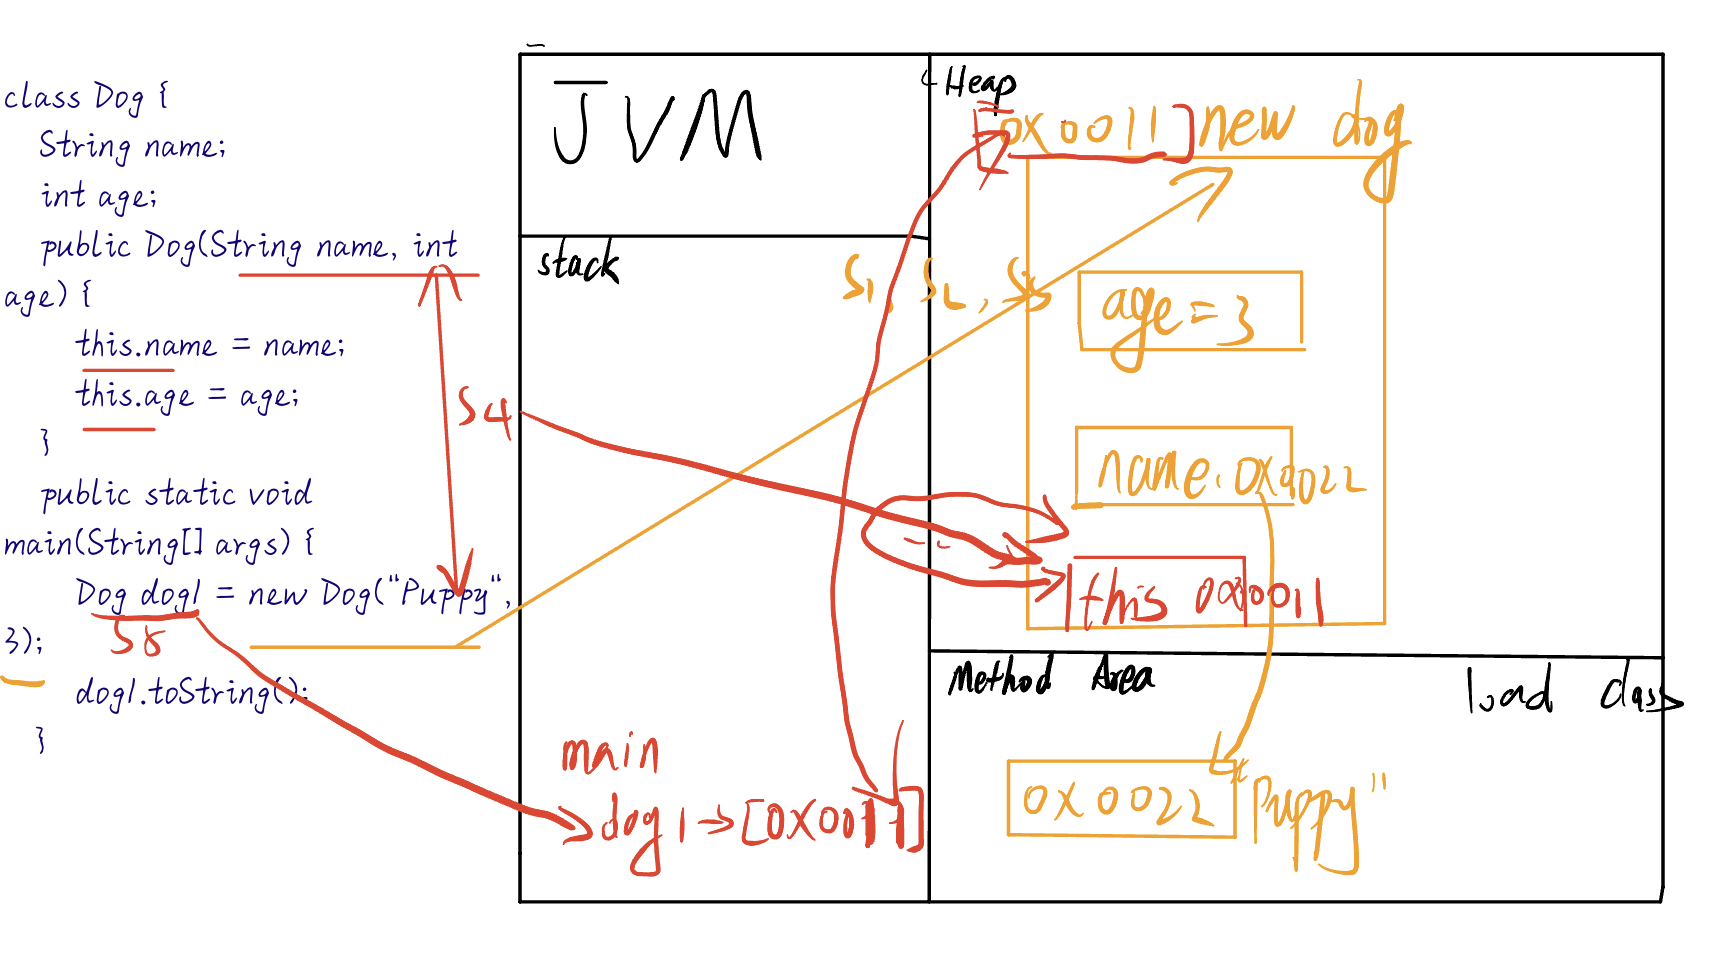 class Dog {
String name;
int age;
public Dog(String name, int
age) {
this.name = name;
this.age = age;
}
public static void
main(String[] args) {
Dog dog1 = new Dog("Puppy",
3);
dog1.toString();
}
S4
S8
JVM
stack
S1, S2, S3
main
dog1 → [0x0011]
Heap
[0x0011] new dog
age = 3
name. 0x0022
this 0x0011
Method Area
load class
0x0022 "Puppy"